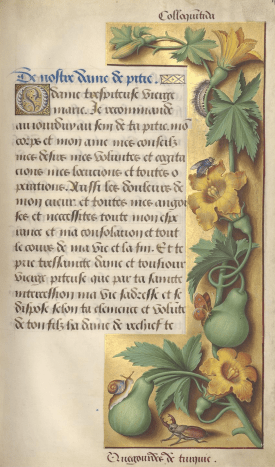 Colloquintida
De nostre dame de pitie.
O dame trespiteuse vierge
marie. Je recommande
au iourduy au sein de ta pitie. mō
corps et mon ame mes conseilz
mes desirs mes voluntes et cogita
cions mes locucions et toutes o
perations. Aussi les douleurs de
mon cueur et toutes mes angois
ses et necessites toute mon espe
rance et ma consolation et tout
le cours de ma vie et la fin. Et te
prie tressaincte dame et tousiour
vierge piteuse que par ta saincte
intercession ma vie sadresse et se
dispose selon ta clemence et volute
de ton filz ha dame de rechief te
Quegourdes de turquie.